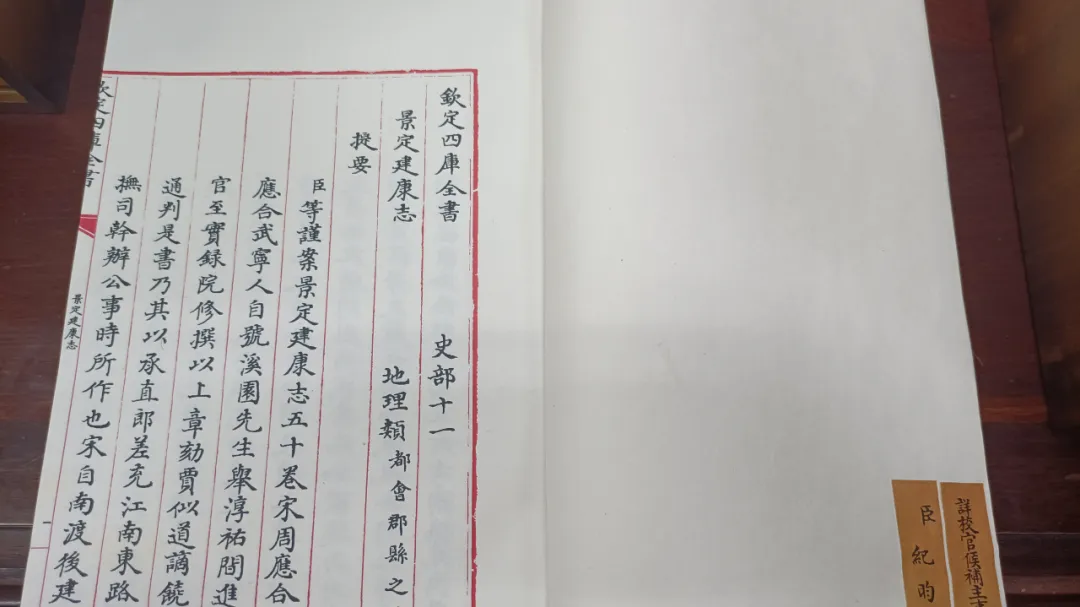 詳校官候補主
臣紀昀
欽定四庫全書 史部十一
景定建康志 地理類 都會郡縣之
提要
臣等謹案景定建康志五十卷宋周應合
應合武寧人自號溪園先生舉淳祐間進
官至實録院修撰以上章劾賈似道謫饒
通判是書乃其以承直郎差充江南東路
撫司幹辦公事時所作也宋自南渡後建
欽定四庫全書
景定建康志
一